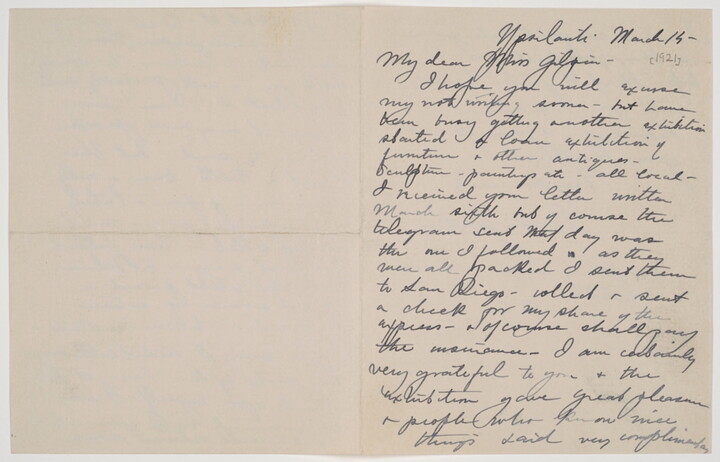 Ypsilanti. March 15-
[1921]
My dear Miss Gilpin-
I hope you will excuse
my not writing sooner - but have
been busy getting another exhibition
started a loan exhibition of
furniture & other antiques-
sculpture - paintings etc - all local-
I received your letter written
March sixth but of course the
telegram sent that day was
the one I followed as they
were all packed I sent them
to San Diego - collect & sent
a check for my share of the
express - & of course shall pay
the insurance - I am certainly
very grateful to you & the
exhibition gave great pleasure
& people who know nice
things said very complimentary